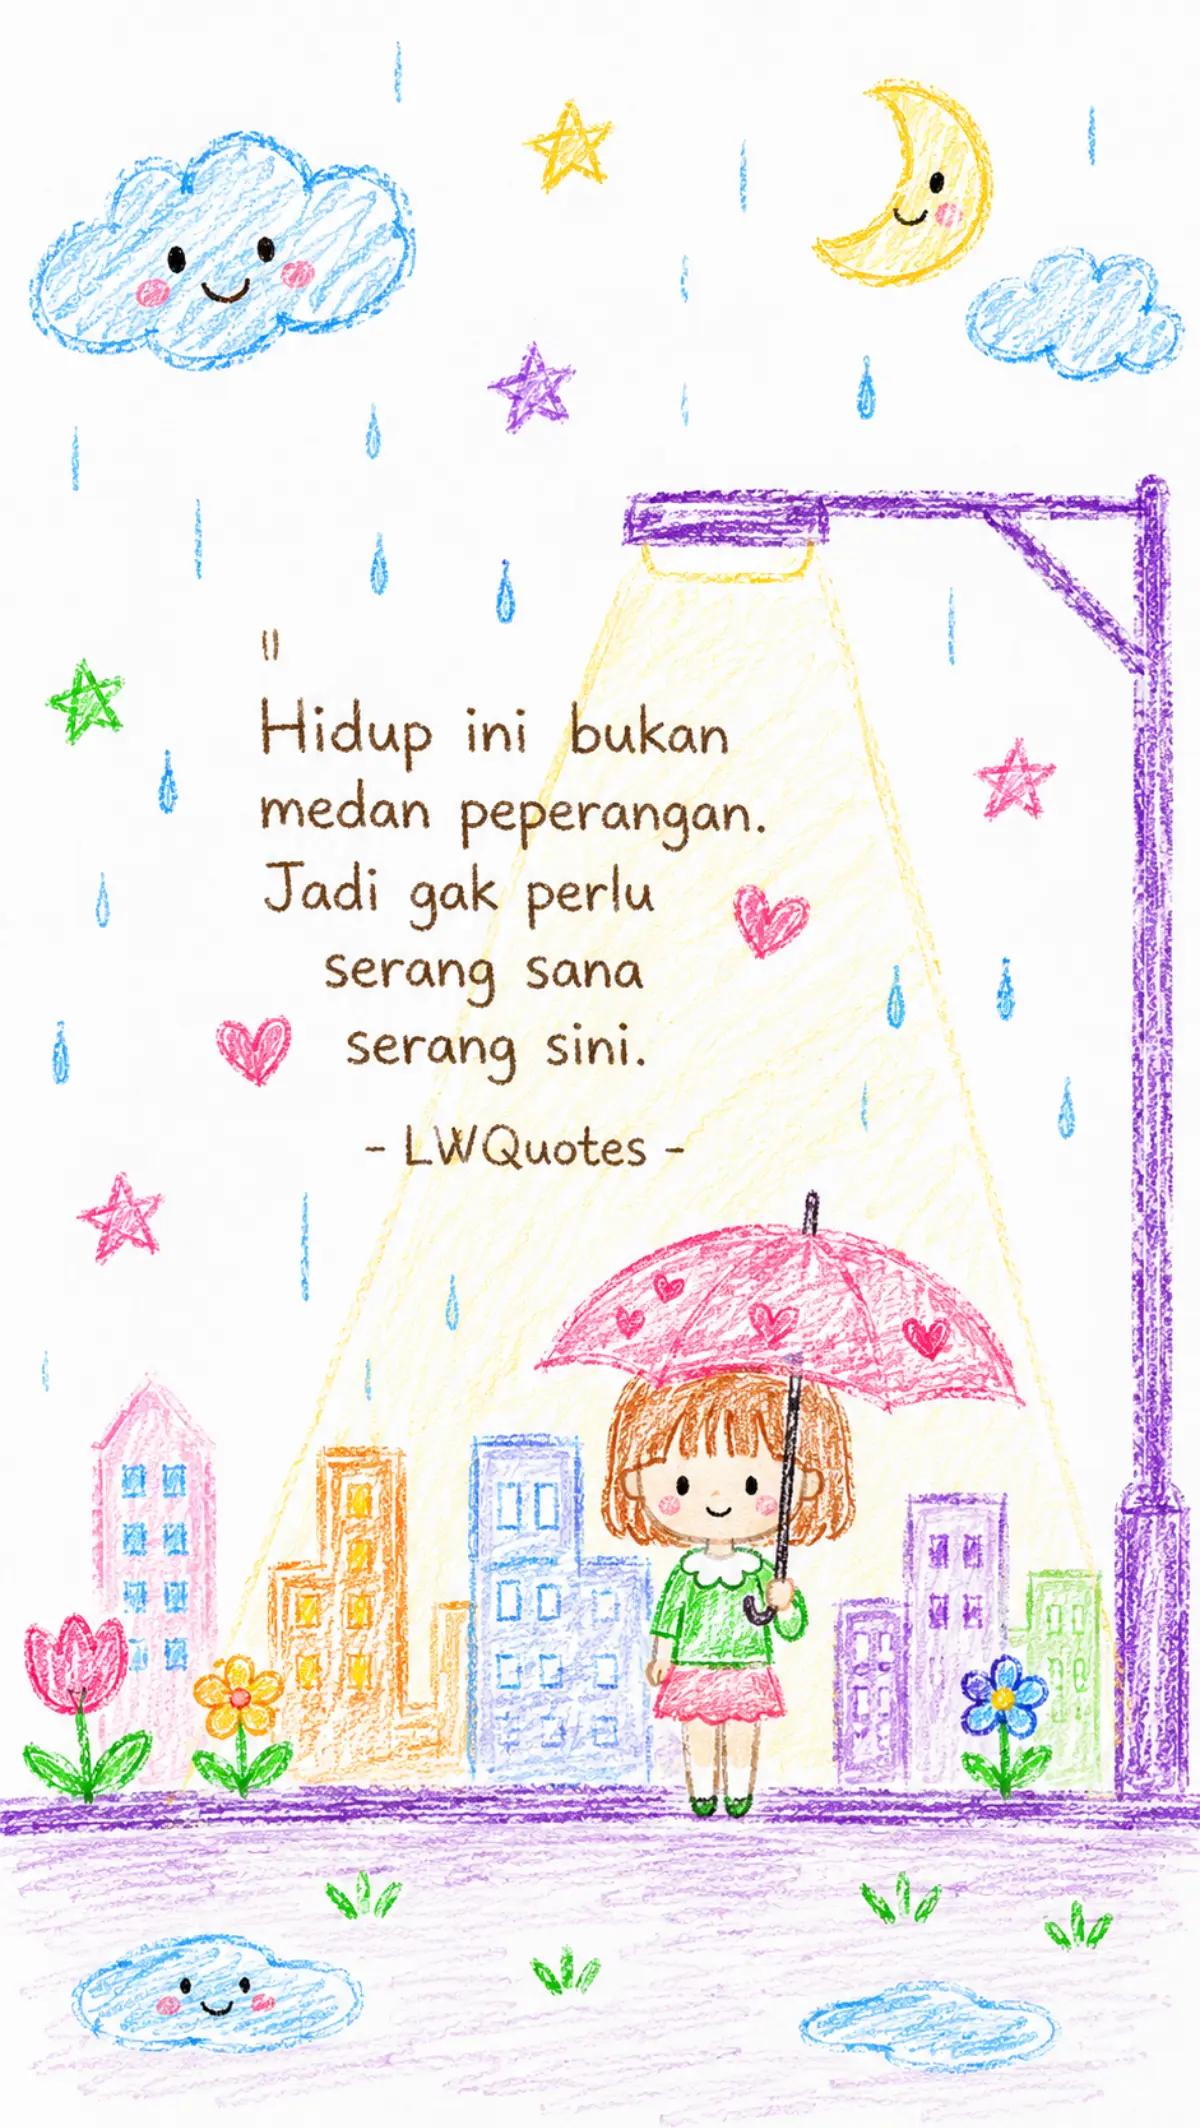 "
Hidup ini bukan
medan peperangan.
Jadi gak perlu
serang sana
serang sini.
- LWQuotes -